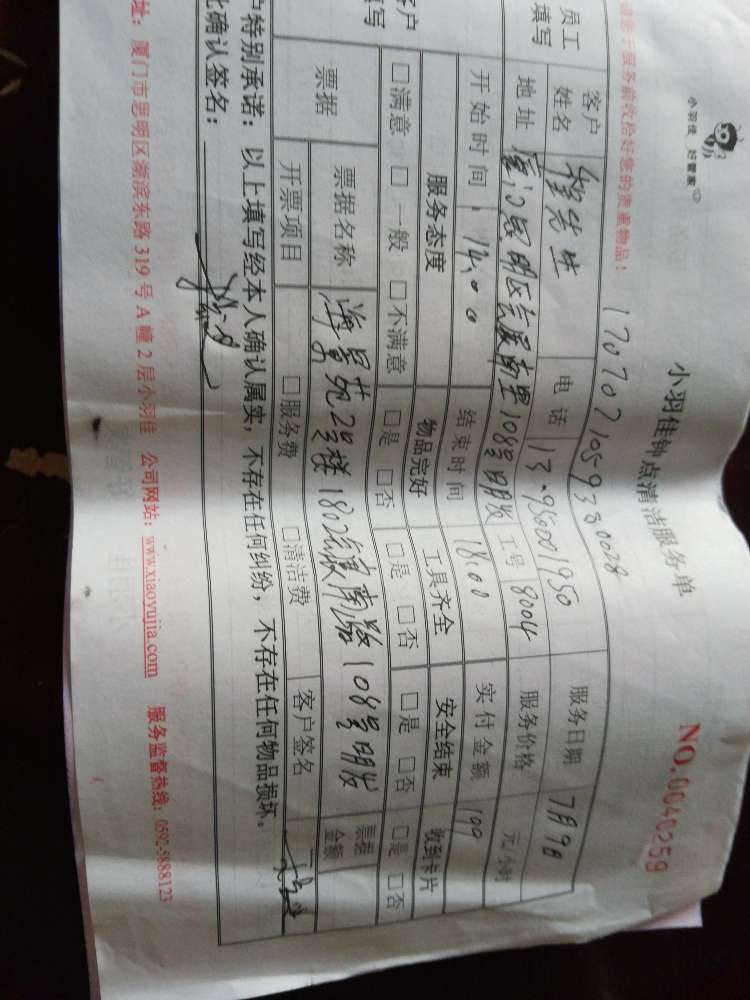 小羽佳 好管家
小羽佳钟点清洁服务单
NO.0040259
请您于服务前收拾好您的贵重物品！
1707071059330028
员工填写
客户姓名
先生
电话
13.950001950
服务日期
7月9日
地址
厦门思明区会展南里108号明发
工号
8004
服务价格
元/小时
开始时间
14:00
结束时间
18:00
实付金额
100
客户填写
服务态度
物品完好
工具齐全
安全结束
收到卡片
□满意 □一般 □不满意
□是 □否
□是 □否
□是 □否
□是 □否
票据
票据名称
海景苑2号楼1802会展南路108号明发
票据金额
开票项目
□服务费
□清洁费
客户签名
户特别承诺：以上填写经本人确认属实，不存在任何纠纷，不存在任何物品损坏。
此确认签名：
址：厦门市思明区湖滨东路319号A幢2层小羽佳 公司网站：www.xiaoyujia.com 服务监督热线：0592-5888123